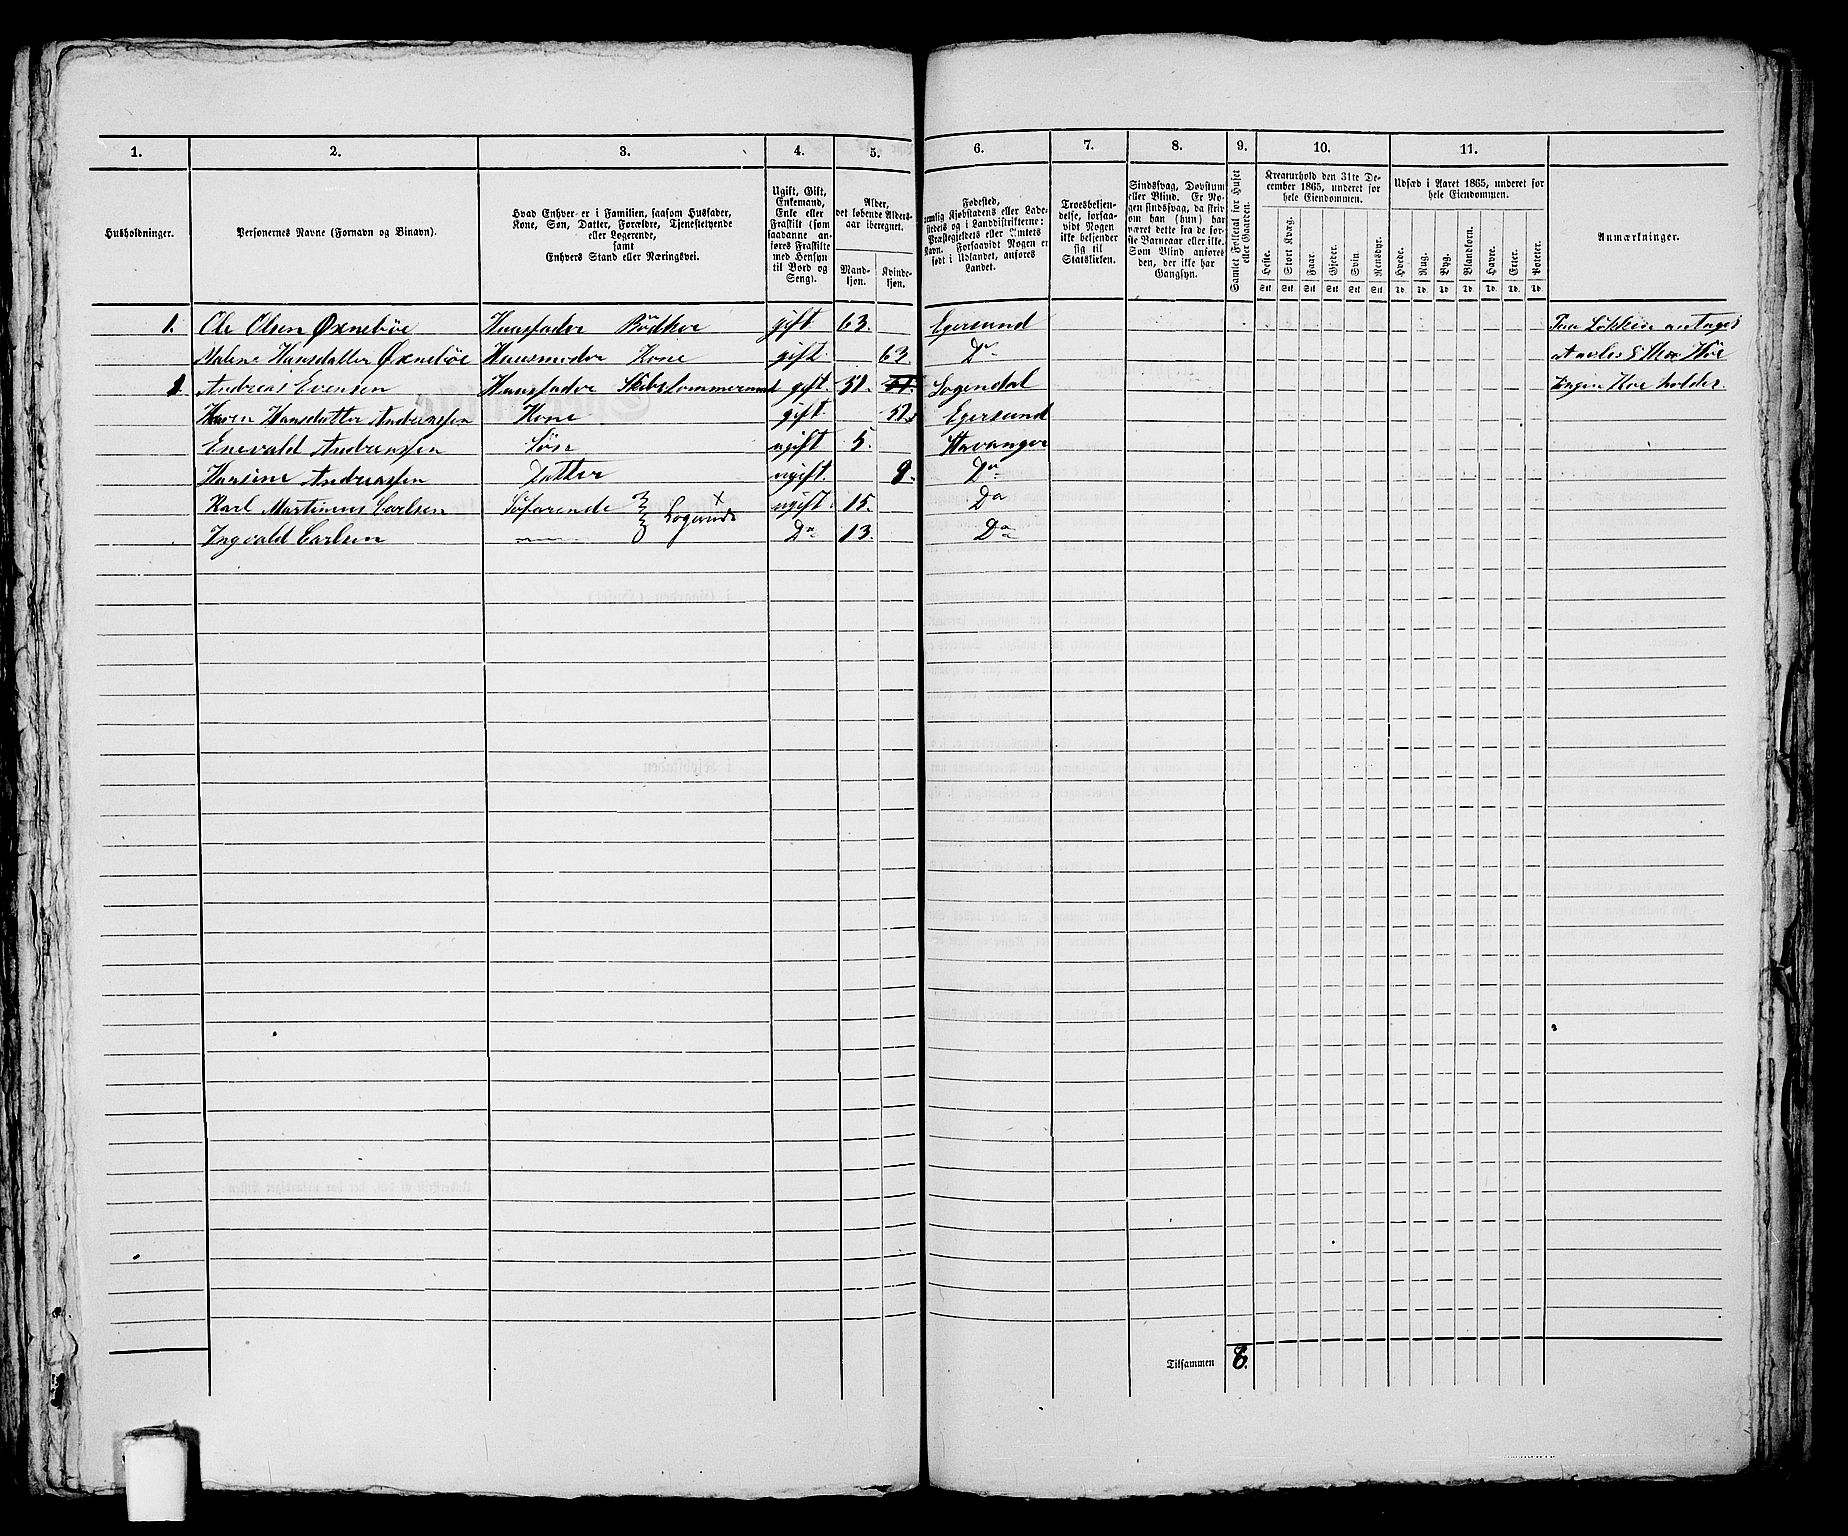 1. 2. 3. 4. 5. 6. 7. 8. 9. 10. 11.
Husholdninger.
Personernes Navne (Fornavn og Binavn).
Hvad Enhver er i Familien, saasom Husfader,
Kone, Søn, Datter, Forældre, Tjenestetyende
eller Logerende,
samt
Enhvers Stand eller Næringsvei.
Ugift, Gift,
Enkemand,
Enke eller
Fraskilt (som
saadanne an-
føres Fraskilte
med Hensyn
til Bord og
Seng).
Alder,
det løbende Alders-
aar iberegnet.
Mand-
kjøn.
Kvinde-
kjøn.
Fødested,
nemlig Kjøbstadens eller Lade-
stedets og i Landdistrikterne:
Præstegjeldets eller Amtets
Navn. Forsaavidt Nogen er
født i Udlandet, anføres
Landet.
Troesbekjen-
delse, forsaa-
vidt Nogen
ikke bekjender
sig til
Statskirken.
Sindssvag, Døvstum
eller Blind. Er No-
gen sindssvag, da skriv
om han (hun) har
været dette fra de før-
ste Barneaar eller ikke.
Som Blind anføres
den, der ikke har
Gangsyn.
Samlet Folketal for Huset
eller Gaarden.
Kreaturhold den 31te De-
cember 1865, underet for
hele Eiendommen.
Heste. Stort Kvæg. Faar. Gjeder. Svin. Rensdyr.
Stk Stk Stk Stk Stk Stk
Udsæd i Aaret 1865, underet for
hele Eiendommen.
Hvede. Rug. Byg. Blandkorn. Havre. Erter. Poteter.
Td. Td. Td. Td. Td. Td. Td.
Anmærkninger.
1. Ole Olsen Øxnebøe Huusfader Bödker gift. 63. Egersund
Malene Hansdatter Øxnebøe Huusmoder Kone gift. 63. Do
2. Andreas Evensen Huusfader Skibstømmermand gift. 51. Sogendal
Karen Hansdatter Andreassen Kone gift. 51. Egersund
Enevald Andreassen Søn ugift 5. Stavanger
Hansine Andreassen Datter ugift. 9. Do
Karl Martinius Carlsen Søfarende } Logerende × ugift. 15. Do
Ingvald Carlsen Do 13. Do
Paa Løkken antages
at avles Høe
Ingen Koe holdes.
Tilsammen 8.